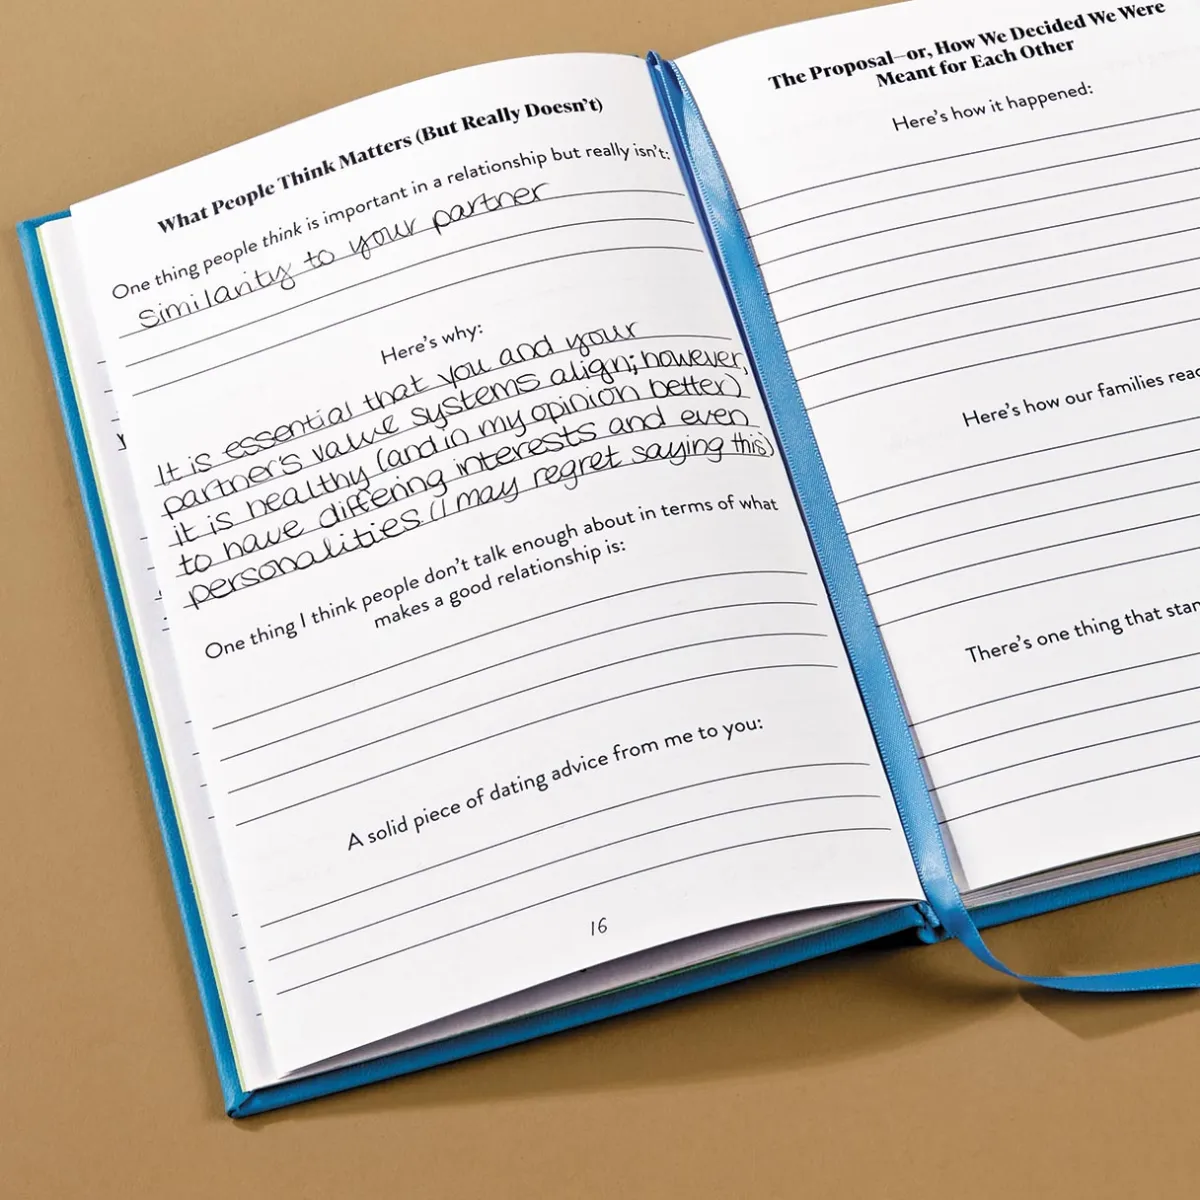 What People Think Matters (But Really Doesn't)
One thing people think is important in a relationship but really isn't:
similarity to your partner
Here's why:
It is essential that you and your
partner's value systems align; however,
it is healthy (and in my opinion better)
to have differing interests and even
personalities. (I may regret saying this)
One thing I think people don't talk enough about in terms of what
makes a good relationship is:
A solid piece of dating advice from me to you:
16
The Proposal—or, How We Decided We Were
Meant for Each Other
Here's how it happened:
Here's how our families
There's one thing that